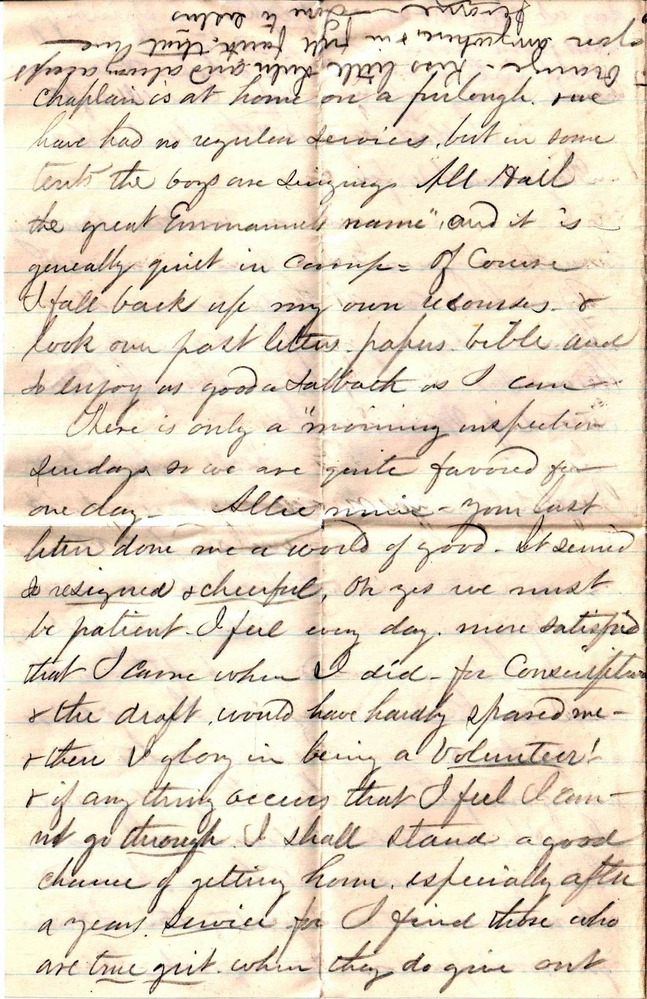 chaplain is at home on a furlough. & we
have had no regular services, but in some
tents the boys are singing All Hail
the great Emmanuels name", and it is
generally quiet in camp = Of Course
I fall back up my own resourses. &
look over past letters. papers. bible and
so enjoy as good a Sabbath as I can
There is only a "morning inspection
Sundays so we are quite favored for
one day - Allie mine - your last
letter done me a world of good - it seemed
so resigned & cheerful, Oh yes we must
be patient. I feel every day. more satisfied
that I came when I did - for Conscription
& the draft, would have hardly spared me -
& then I glory in being a Volunteer!
& if any thing occurs that I feel I can -
not go through. I shall stand a good
chance of getting home. especially after
a years service for I find those who
are true grit. when they do give out
Orange - Kiss little and always
you anywhere, & in full faith, that
time to